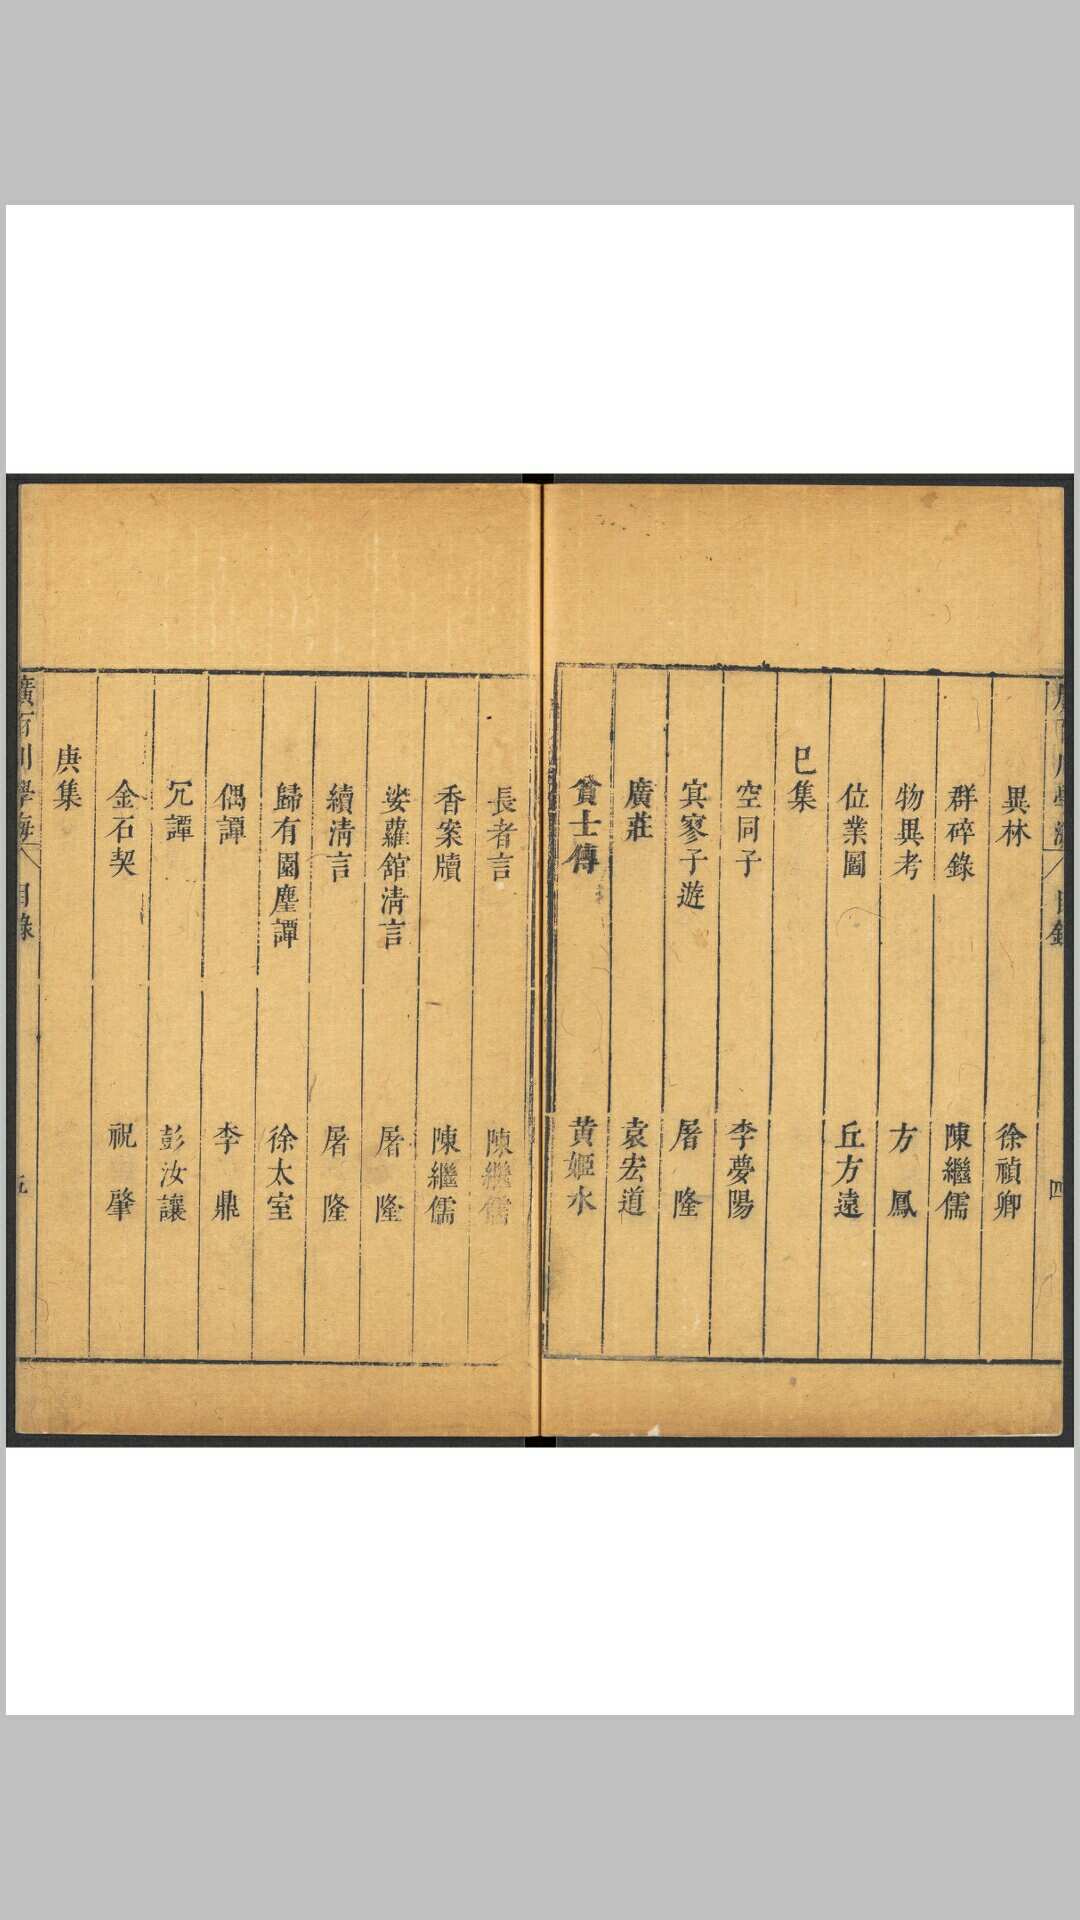 廣百川學海 目錄 四
異林 徐禎卿
群碎錄 陳繼儒
物異考 方鳳
位業圖 丘方遠
巳集
空同子 李夢陽
㝠寥子遊 屠隆
廣莊 袁宏道
貧士傳 黃姬水
長者言 陳繼儒
香案牘 陳繼儒
娑蘿館清言 屠隆
續清言 屠隆
歸有園麈譚 徐太室
偶譚 李鼎
冗譚 彭汝讓
金石契 祝肇
庚集
廣百川學海 目錄 五